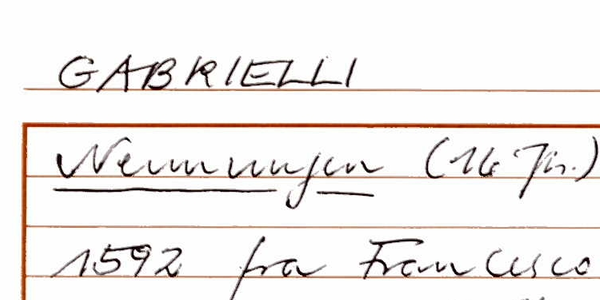 GABRIELLI
Nennungen (16 Jh.)
1592 fra Francesco